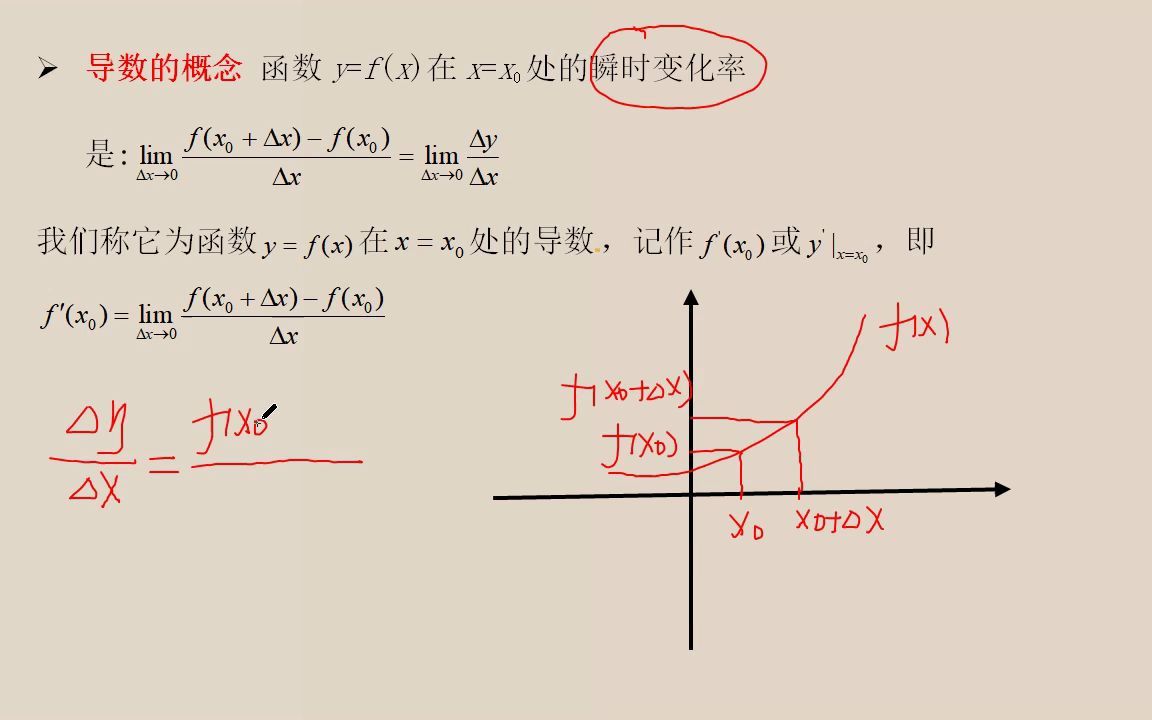 ➢ 导数的概念 函数 y=f(x)在 x=x₀处的瞬时变化率
是: lim_{Δx→0} \frac{f(x₀ + Δx) − f(x₀)}{Δx} = lim_{Δx→0} \frac{Δy}{Δx}
我们称它为函数 y = f(x) 在 x = x₀ 处的导数, 记作 f'(x₀) 或 y'|_{x=x₀}, 即
f′(x₀) = lim_{Δx→0} \frac{f(x₀ + Δx) − f(x₀)}{Δx}
f(x)
f(x₀+Δx)
f(x₀)
x₀ x₀+Δx
\frac{Δy}{Δx} = f(x₀